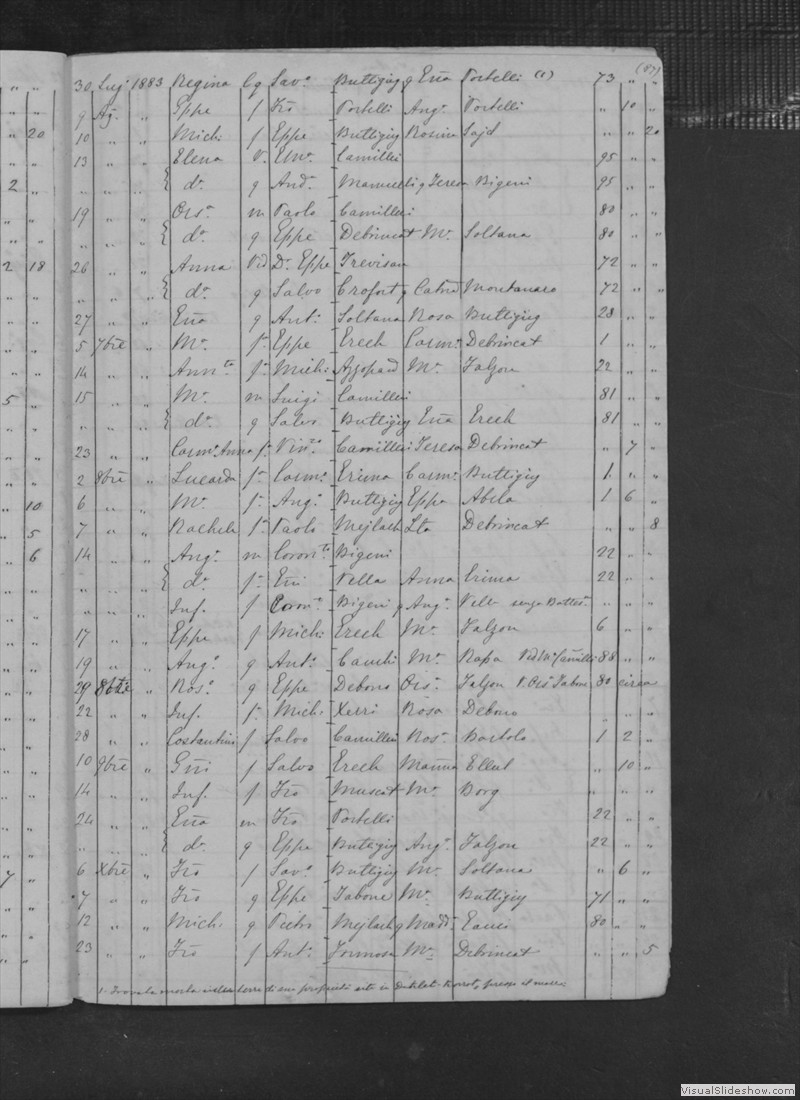 (87)
30 Lug 1883 Regina bq Sav.a Buttigig q Eña Portelli (1) 73 " "
9 Ag. " Eppe f Frō Portelli Ang.a Portelli " 10 "
10 " " Mich. f Eppe Buttigig Rosina Sajd " " 20
13 " " Elena V. Em. Camilleri 95 " "
" " " { d.a q And.a Manucelli q Teresa Bigeni 95 " "
19 " " Ors.a m Paolo Camilleri 80 " "
" " " { d.a q Eppe Debrincat M.a Soltana 80 " "
26 " " Anna Vid D.r Eppe Trevisan 72 " "
" " " { d.a q Salvo Crofort q Catña Montanaro 72 " "
27 " " Eña q Ant.o Soltana Rosa Buttigig 28 " "
5 7bre " M.a f. Eppe Erech Carm.a Debrincat 1 " "
14 " " Ann.ta f. Mich. Azzopard M.a Falzon 22 " "
15 " " M.a m Luigi Camilleri 81 " "
{ d.a q Salvo Buttigig Eña Erech 81 " "
23 " " Carm.a Anna f. Vin.zo Camilleri Teresa Debrincat " 7 "
2 8bre " Lucarda f. Carm.o Erima Carm.a Buttigig 1 " "
6 " " M.a f. Ang.o Buttigig Eppa Abela 1 6 "
7 " " Rachele f. Paolo Mejlach Lta Debrincat " " 8
14 " " Ang.a m Coron.to Bigeni 22 " "
{ d.a f. Eñi Vella Anna Erima 22 " "
" " " Inf. f Coron.o Bigeni q Ang.a Vella senza Battes.o " " "
17 " " Eppe f Mich. Erech M.a Falzon 6 " "
19 " " Ang.o q Ant.o Cauchi M.a Rapa Vid M.a Camilleri 88 " "
29 8bre " Ros.a q Eppe Debono Ors.a Falzon V. Ors.o Tabone 80 circa
22 " " Inf. f. Mich. Xerri Rosa Debono " "
28 " " Costantino f Salvo Camilleri Ros.a Bartolo 1 2 "
10 9bre " Gñi f Salvo Erech Marña Ellul " 10 "
14 " " Inf. f Frō Muscat M.a Borg " " "
24 " " Eña m Frō Portelli 22 " "
" " " { d.a q Eppe Buttigig Ang.a Falzon 22 " "
6 Xbre " Frō f Sav.o Buttigig M.a Soltana " 6 "
7 " " Frō q Eppe Tabone M.a Buttigig 71 " "
12 " " Mich. q Pietro Mejlach q Madd.a 80 " "
23 " " Frō f Ant.o Formosa M.a Debrincat " " 5
1. Trovata morta nella terra di sua proprietà sita in
VisualSlideshow.com